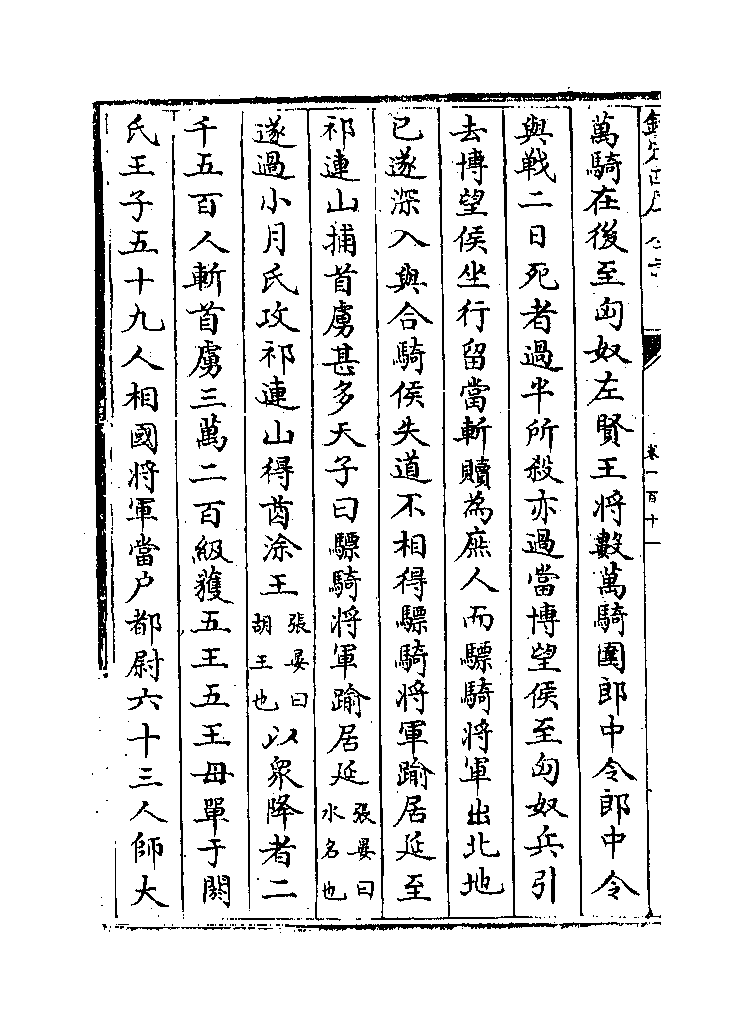 欽定四庫全書
卷一百十一
萬騎在後至匈奴左賢王將數萬騎圍郎中令郎中令
與戰二日死者過半所殺亦過當博望侯至匈奴兵引
去博望侯坐行留當斬贖為庶人而驃騎將軍出北地
已遂深入與合騎侯失道不相得驃騎將軍踰居延至
祁連山捕首虜甚多天子曰驃騎將軍踰居延張晏曰水名也
遂過小月氏攻祁連山得酋涂王張晏曰胡王也以衆降者二
千五百人斬首虜三萬二百級獲五王五王母單于閼
氏王子五十九人相國將軍當户都尉六十三人師大